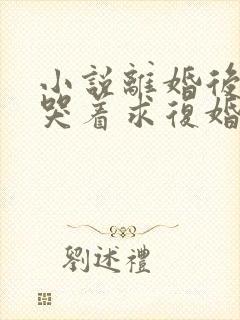 小說離婚後
哭着求復婚
劉述禮